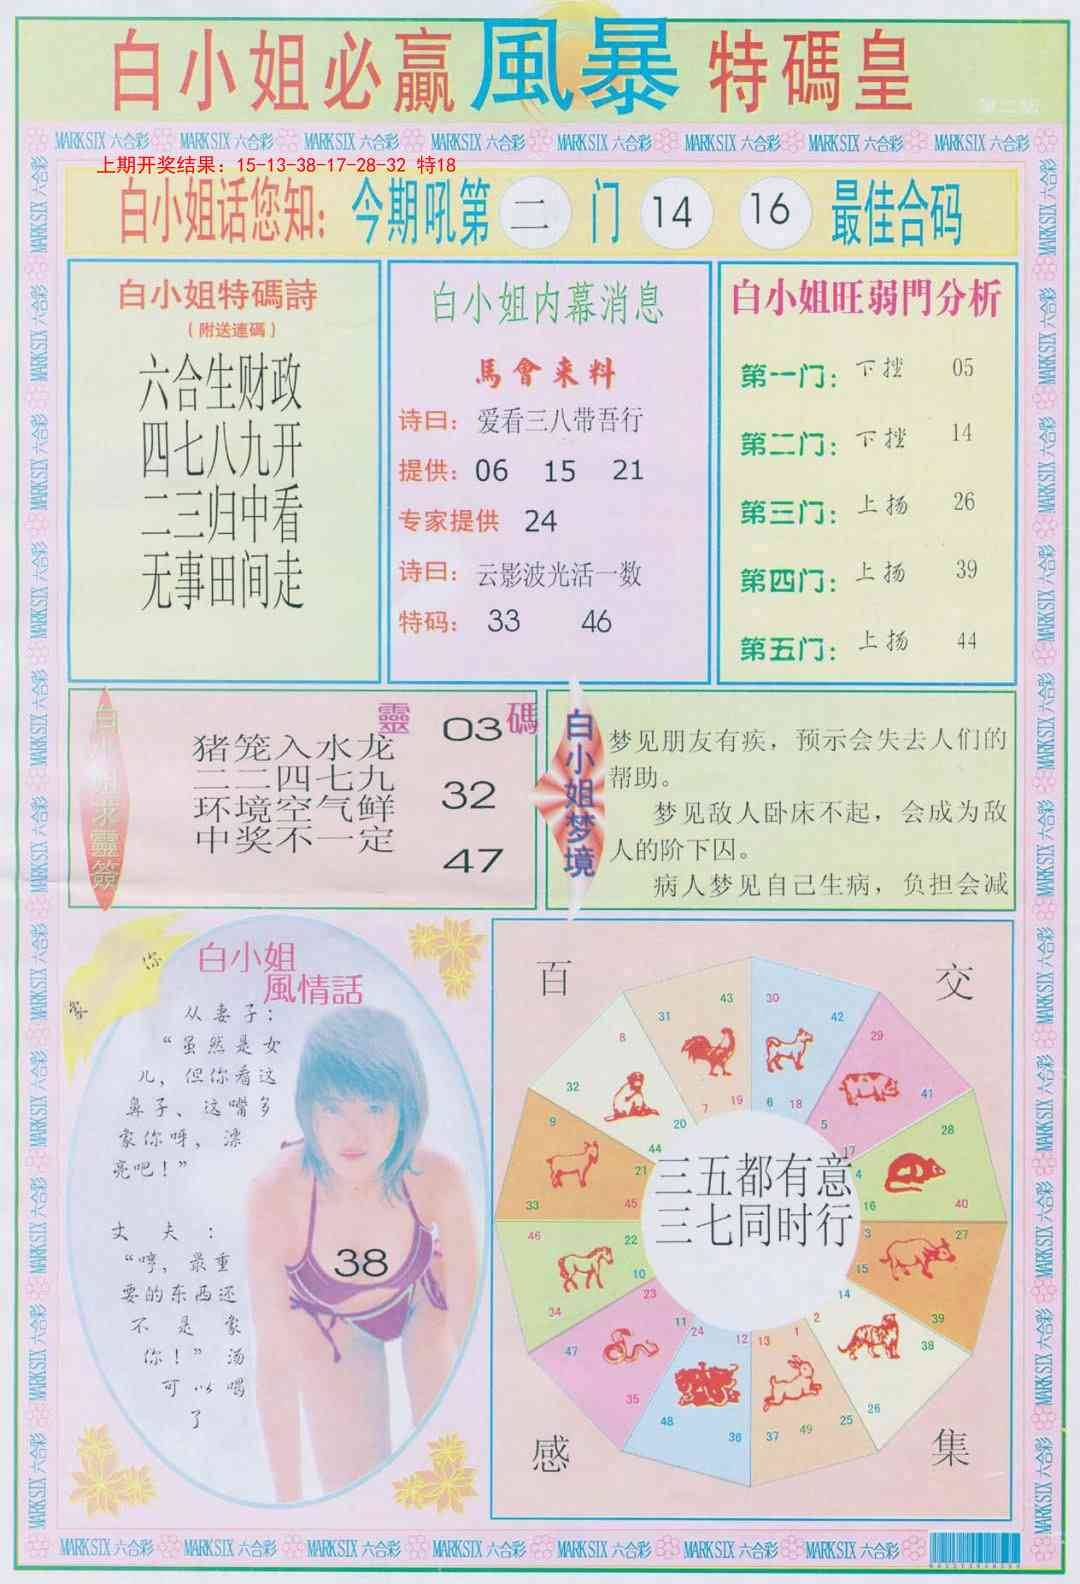 白小姐必贏風暴特碼皇
MARK SIX 六合彩 MARK SIX 六合彩 MARK SIX 六合彩 MARK SIX 六合彩 MARK SIX 六合彩 MARK SIX 六合彩 MARK SIX 六合彩 MARK SIX 六合彩
上期开奖结果：15-13-38-17-28-32 特18
白小姐话您知：今期吼第 二 门 14 16 最佳合码
白小姐特碼詩
（附送連碼）
六合生财政
四七八九开
二三归中看
无事田间走
白小姐内幕消息
馬會来料
诗曰：爱看三八带吾行
提供：06 15 21
专家提供 24
诗曰：云影波光活一数
特码：33 46
白小姐旺弱門分析
第一门：下挫 05
第二门：下挫 14
第三门：上扬 26
第四门：上扬 39
第五门：上扬 44
白小姐求靈簽
猪笼入水龙
二二四七九
环境空气鲜
中奖不一定
靈碼
03
32
47
白小姐梦境
梦见朋友有疾，预示会失去人们的
帮助。
梦见敌人卧床不起，会成为敌
人的阶下囚。
病人梦见自己生病，负担会减
白小姐
風情話
你
从妻子：
“虽然是女
儿，但你看这
鼻子、这嘴多
象你呀，漂
亮吧！”
丈夫：
“哼，最重
要的东西还
不是象
你！”汤
可以喝
了
38
百
交
感
集
三五都有意
三七同时行
43 31 19 7
30 42 18 6
29 41 5 17
28 40 4 16
3 27 15 39
14 2 38 26
1 13 25 49 37
12 24 36 48
11 23 35 47
46 22 10 34
9 21 33 45
8 32 20 44
MARK SIX 六合彩 MARK SIX 六合彩 MARK SIX 六合彩 MARK SIX 六合彩 MARK SIX 六合彩 MARK SIX 六合彩 MARK SIX 六合彩